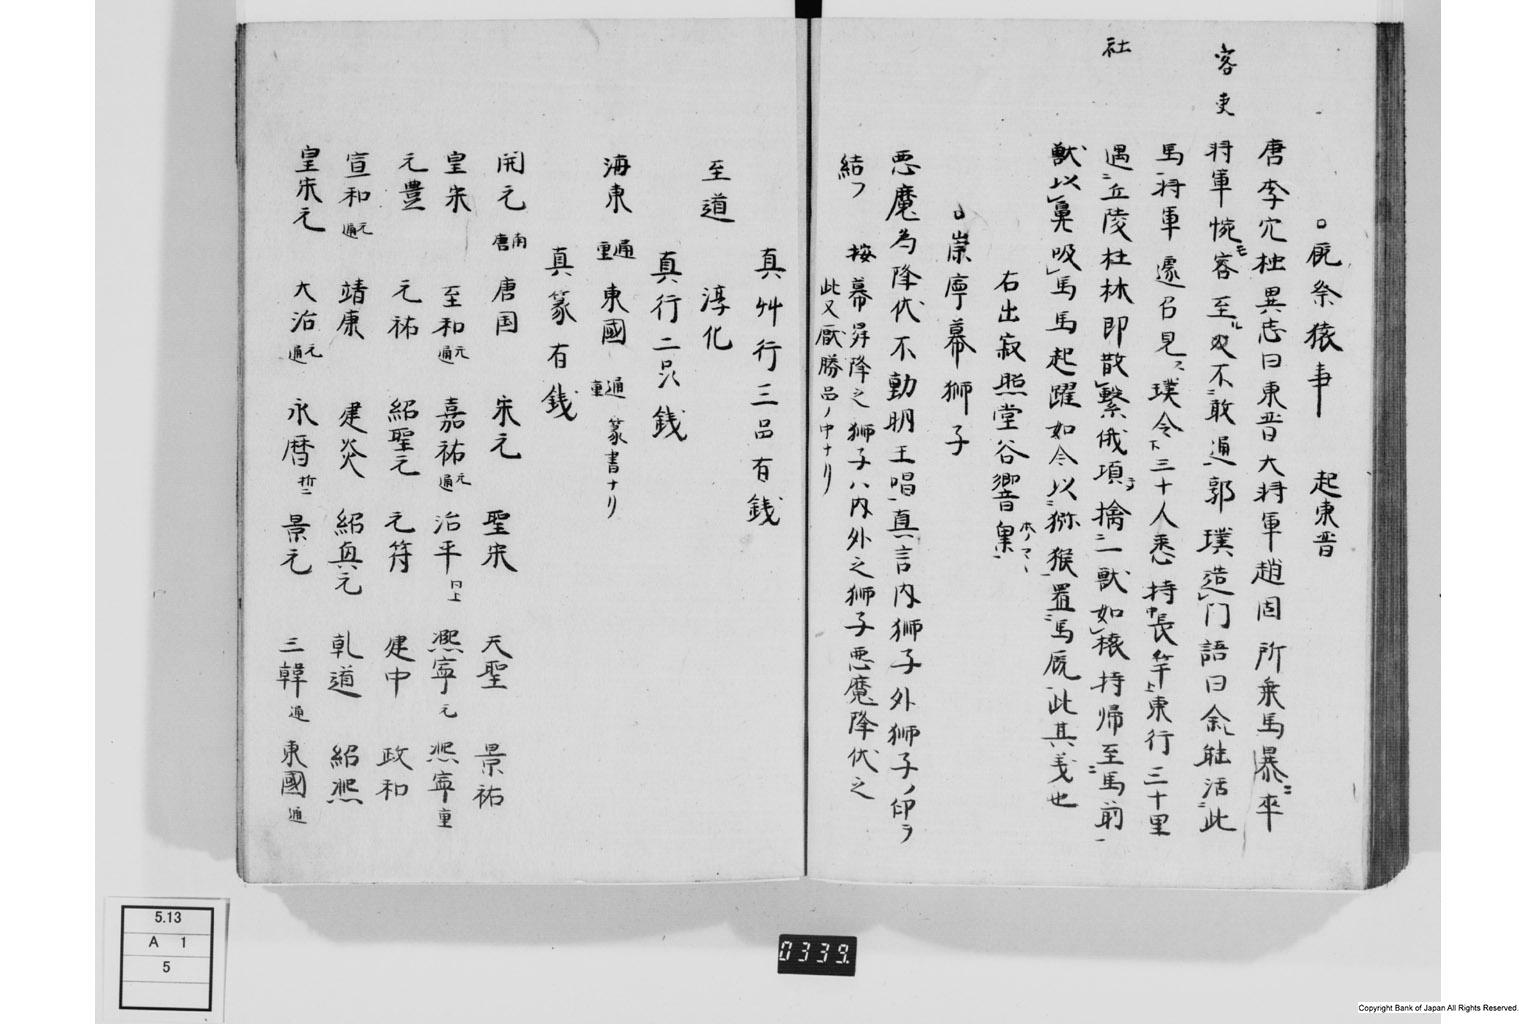 社
客吏
○厩祭猿事　起東晋
唐李冗独異志曰東晋大将軍趙固所乗馬暴卒
将軍惋客至ル吏不敢通郭璞造門語曰余能活此
馬将軍遽召見ス璞令下三十人悉持中長竿上東行三十里
遇丘陵社林即散繋俄頃ニ擒一獣如猿持帰至馬前
獣以鼻吸馬馬起躍如今以猕猴置馬厩此其義也
右出寂照堂谷響
○崇寧幕獅子
悪魔為降伏不動明王唱真言内獅子外獅子ノ印ヲ
結フ　按幕昇降之獅子ハ内外之獅子悪魔降伏之
此又厭勝品ノ中ナリ
真艸行三品有銭
至道　淳化
真行二品銭
海東通重　東國通重　篆書ナリ
真篆有銭
開元南唐　唐国　宋元　聖宋　天聖　景祐
皇宋　至和元通　嘉祐元通　治平同上　熈寧元　熈寧重
元豊　元祐　紹聖元　元符　建中　政和
宣和元通　靖康　建炎　紹興元　乹道　紹熈
皇宋元　大治元通　永暦　景元　三韓通　東國通
5.13
A 1
5
0339.
Copyright Bank of Japan All Rights Reserved.